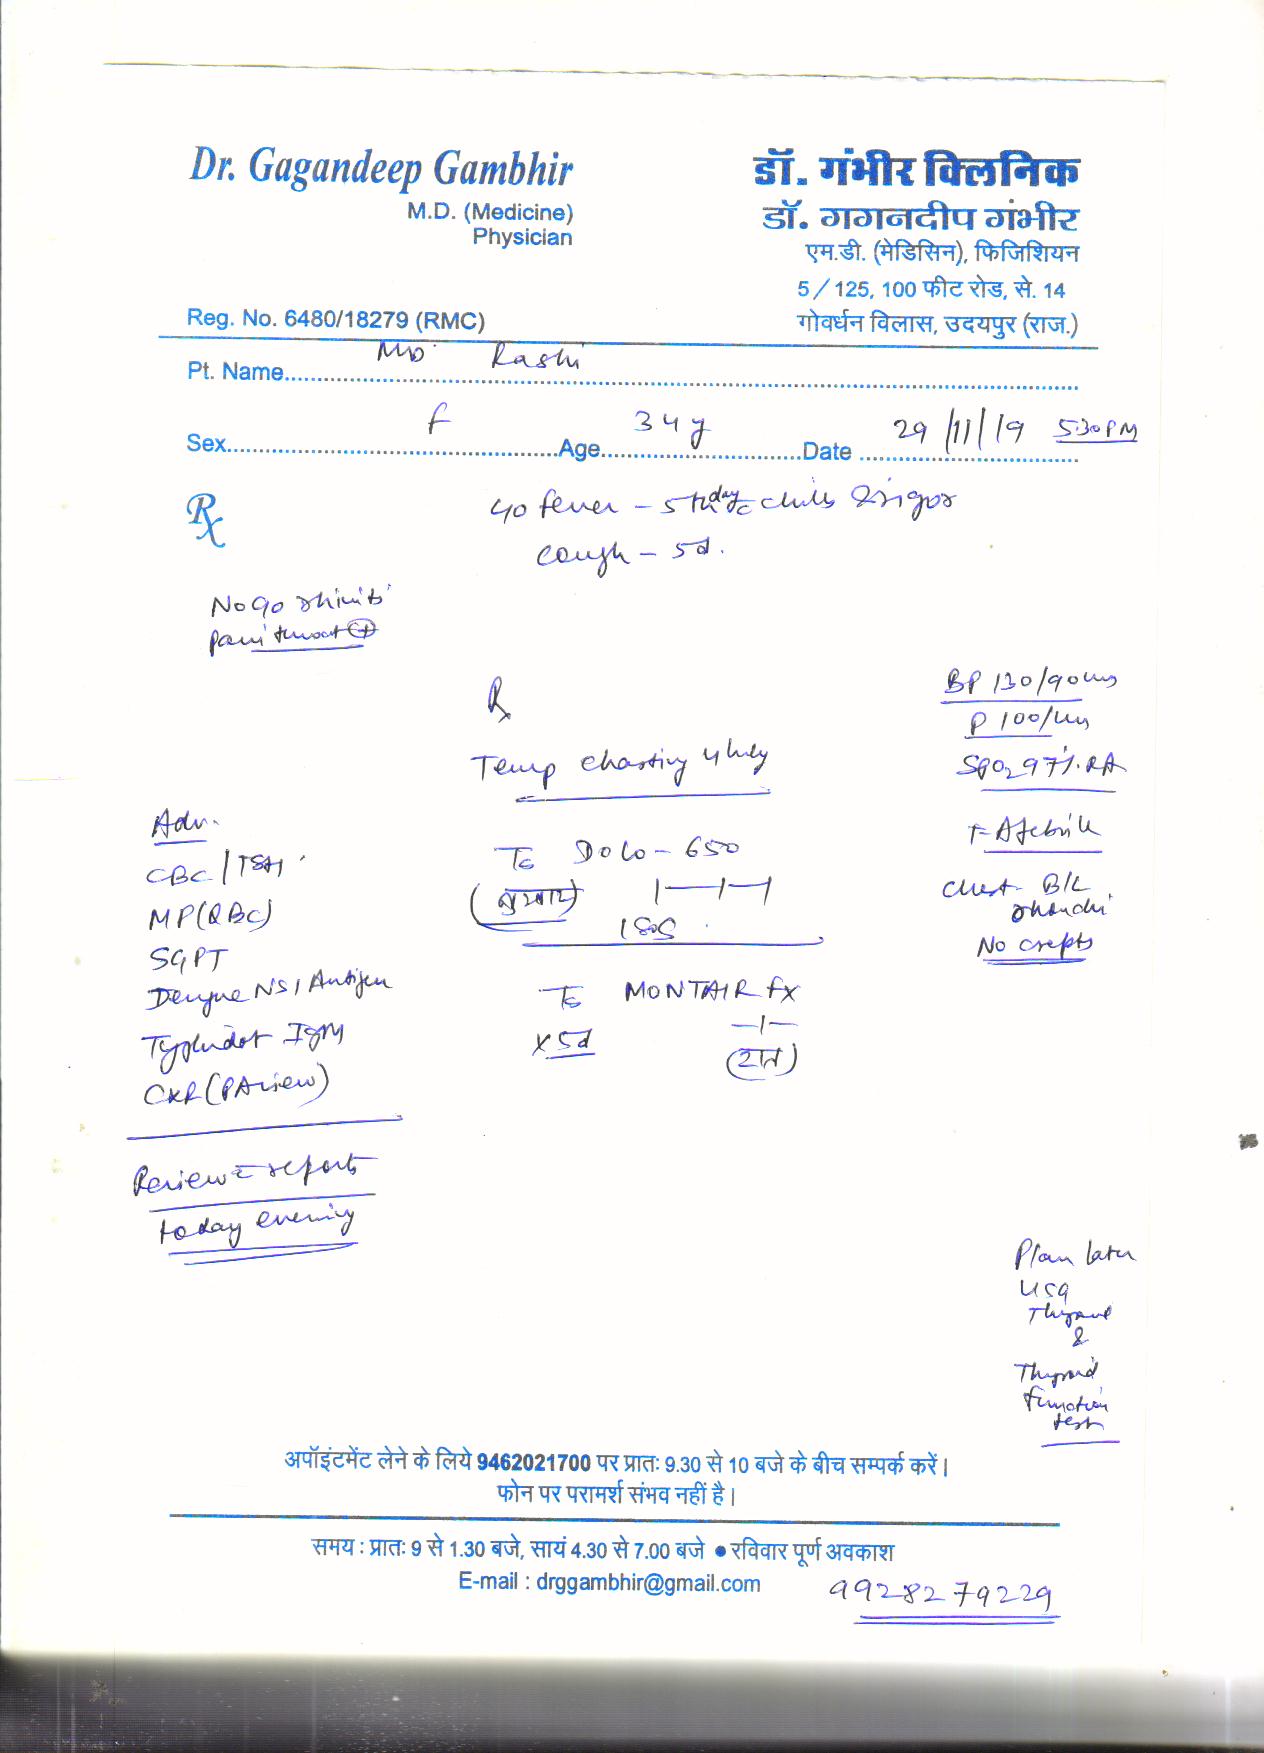 Dr. Gagandeep Gambhir
M.D. (Medicine)
Physician
Reg. No. 6480/18279 (RMC)
डॉ. गंभीर क्लिनिक
डॉ. गगनदीप गंभीर
एम.डी. (मेडिसिन), फिजिशियन
5/125, 100 फीट रोड, से. 14
गोवर्धन विलास, उदयपुर (राज.)
Pt. Name Rashi
Sex F Age 34y Date 29/11/19 5:30PM
Rx
c/o fever - 5th day c chills & rigor
cough - 5d.
No c/o rhinitis
pain throat (+)
Rx
Temp charting 4hrly
BP 130/90
P 100/
SpO2 97%.RA
T- Afebrile
Chest- B/L
rhonchi
No crepts
Adv.
CBC/TSH
MP(QBC)
SGPT
Dengue NS1 Antigen
Typhidot IgM
CXR(PAview)
Review c reports
today evening
Tc DOLO-650
(बुखार) 1—1—1
SOS
Tc MONTAIR FX
x5d —1—
(रात)
Plan later
USG
Thyroid
&
Thyroid
function
test
अपॉइंटमेंट लेने के लिये 9462021700 पर प्रातः 9.30 से 10 बजे के बीच सम्पर्क करें।
फोन पर परामर्श संभव नहीं है।
समय : प्रातः 9 से 1.30 बजे, सायं 4.30 से 7.00 बजे ● रविवार पूर्ण अवकाश
E-mail : drggambhir@gmail.com
9928279229